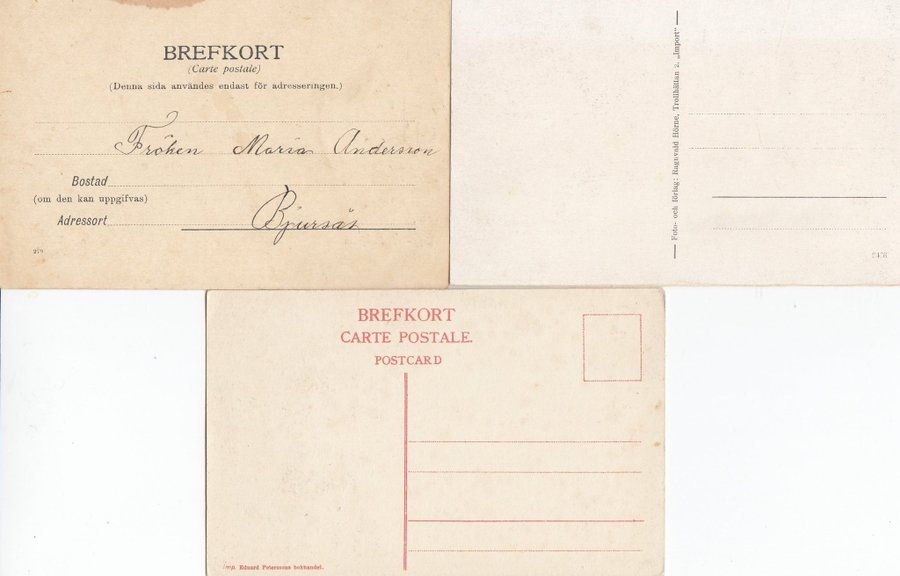 BREFKORT
(Carte postale)
(Denna sida användes endast för adresseringen.)
Fröken Maria Andersson
Bostad
(om den kan uppgifvas)
Adressort Bjursås
279
Foto- och förlag: Ragnvald Hörne, Trollhättan z. „Import“
BREFKORT
CARTE POSTALE.
POSTCARD
Imp. Eduard Peterssons bokhandel.